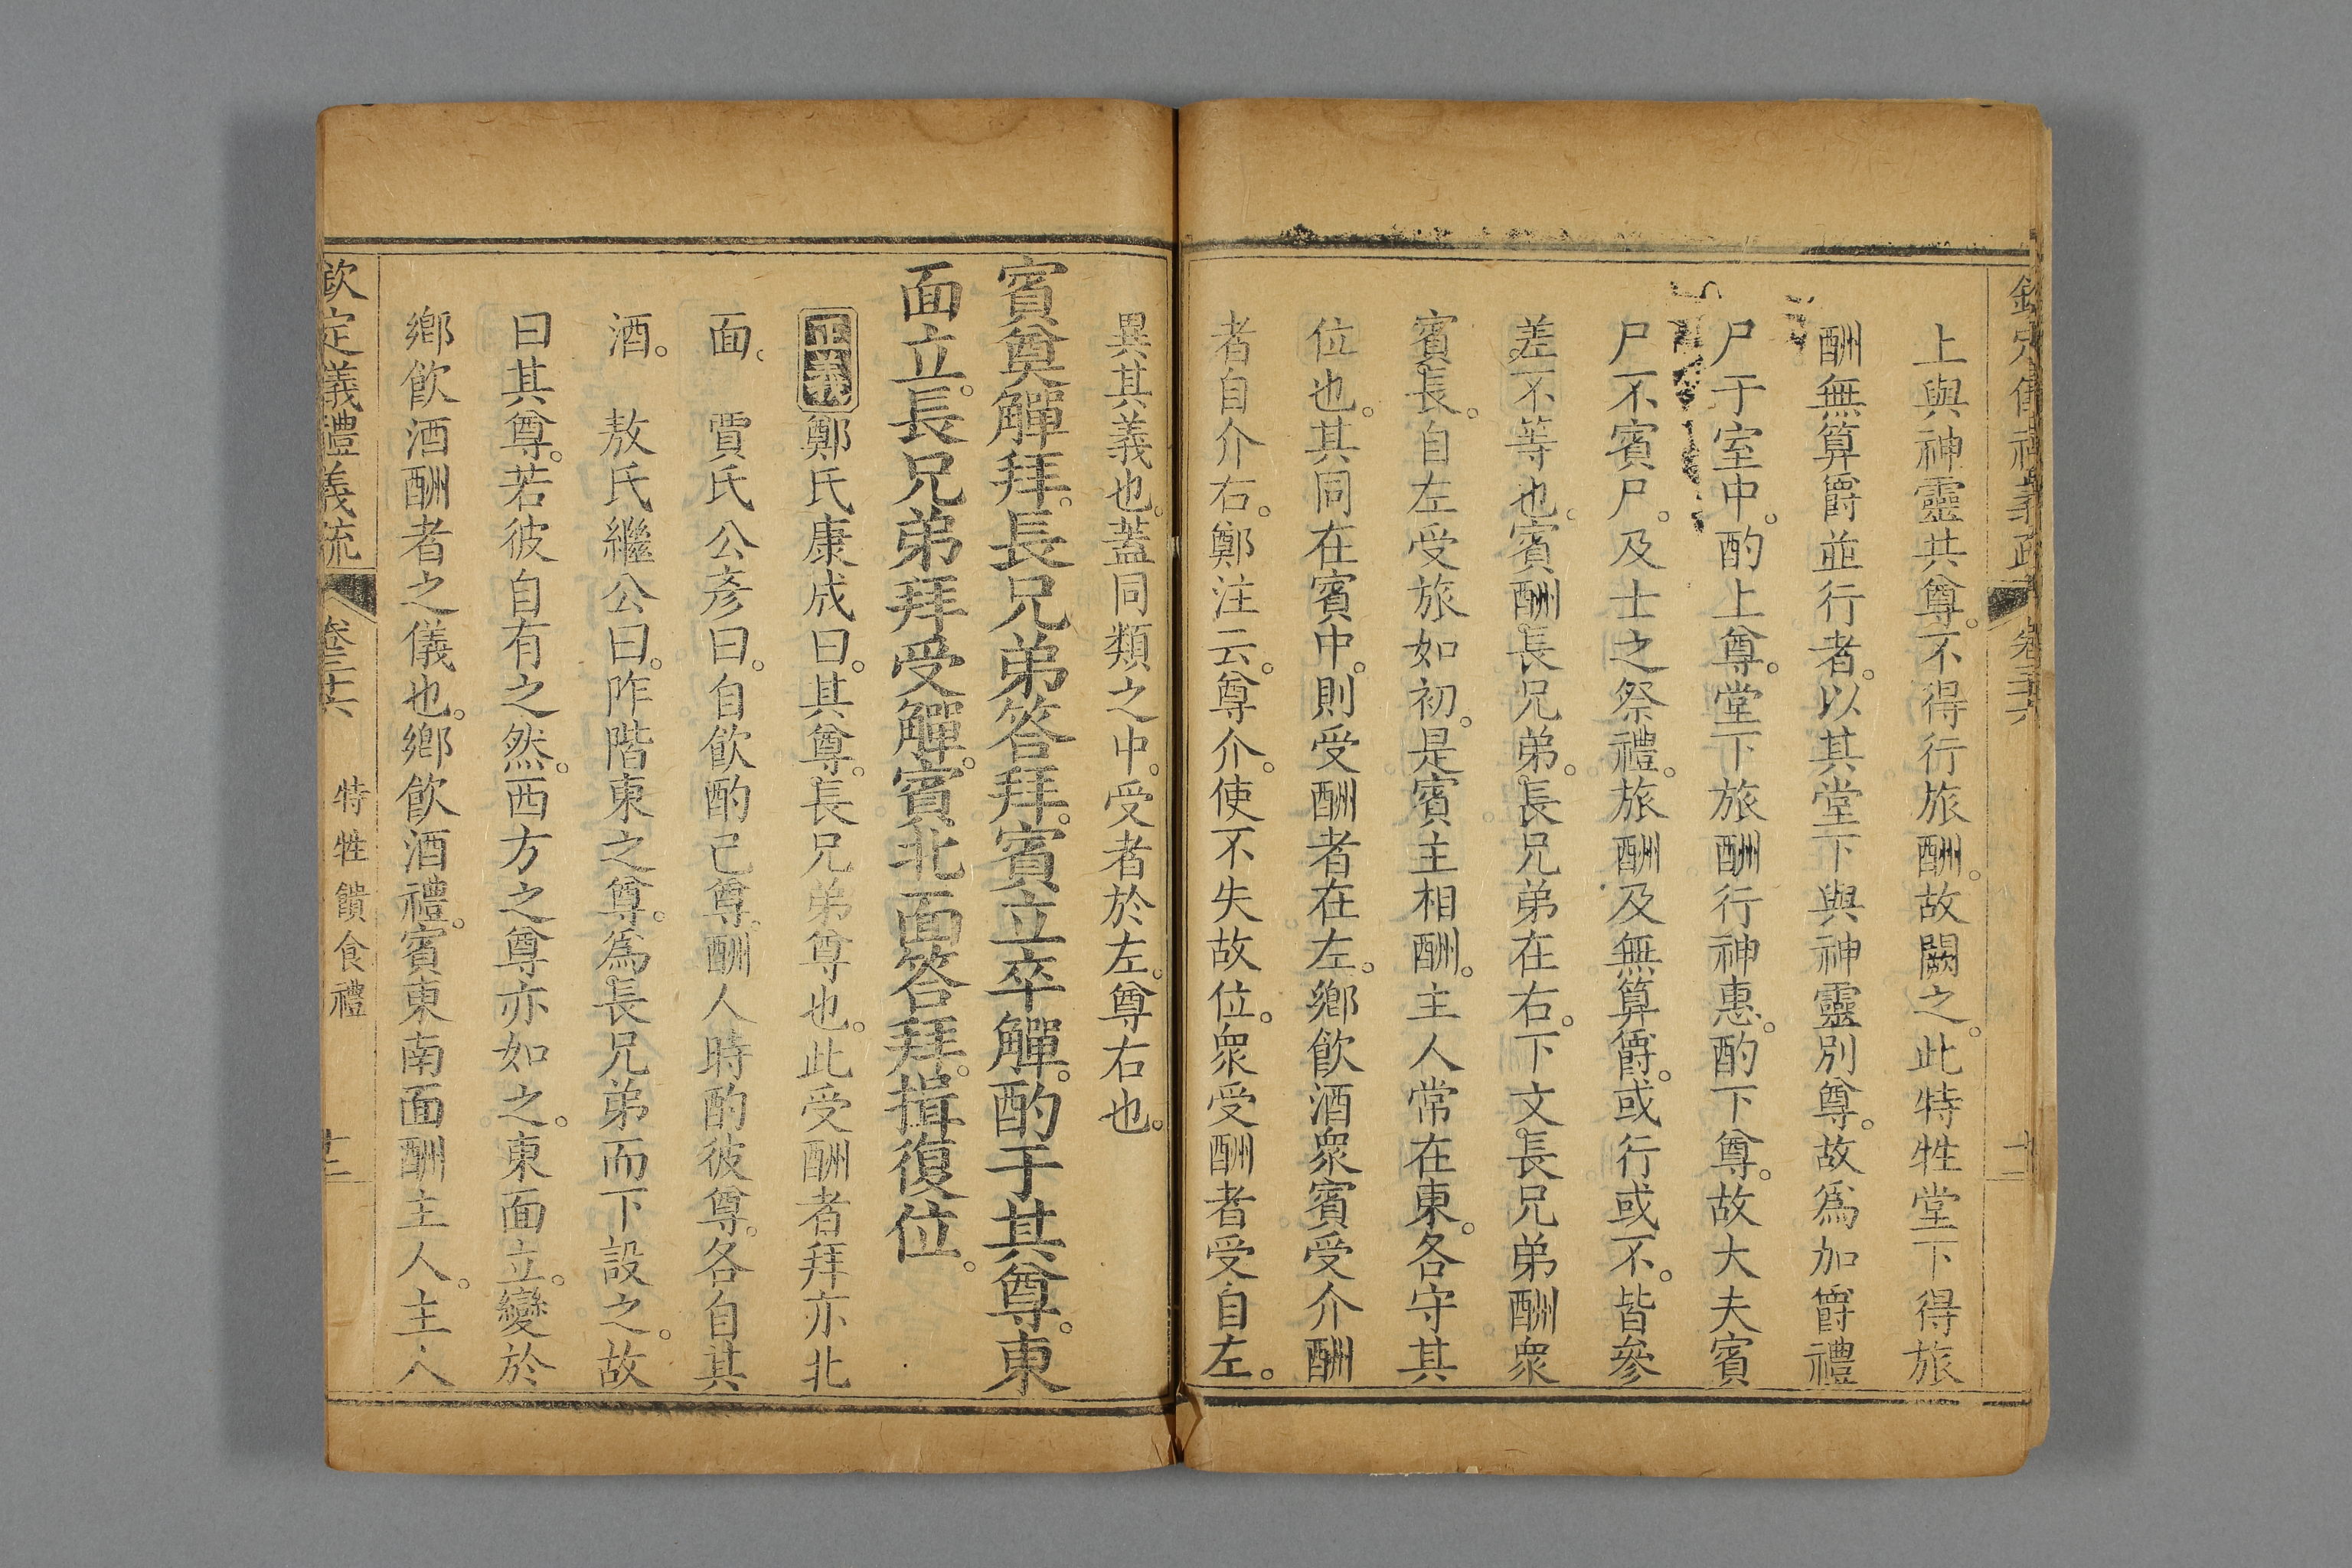 上與神靈共尊。不得行旅酬。故闕之。此特牲堂下得旅
酬無算爵並行者。以其堂下與神靈別尊。故爲加爵禮
尸于室中。酌上尊。堂下旅酬行神惠。酌下尊。故大夫賓
尸不賓尸。及士之祭禮。旅酬及無算爵。或行或不。皆參
差不等也。賓酬長兄弟。長兄弟在右。下文長兄弟酬衆
賓長。自左受旅如初。是賓主相酬。主人常在東。各守其
位也。其同在賓中。則受酬者在左。鄉飲酒衆賓受介酬
者自介右。鄭注云。尊介。使不失故位。衆受酬者受自左。
異其義也。蓋同類之中。受者於左。尊右也。
賓奠觶拜。長兄弟答拜。賓立卒觶。酌于其尊。東
面立。長兄弟拜受觶。賓北面答拜。揖復位。
正義鄭氏康成曰。其尊。長兄弟尊也。此受酬者拜亦北
面。 賈氏公彥曰。自飲酌己尊。酬人時酌彼尊。各自其
酒。 敖氏繼公曰。阼階東之尊。爲長兄弟而下設之。故
曰其尊。若彼自有之然。西方之尊亦如之。東面立。變於
鄉飲酒酬者之儀也。鄉飲酒禮。賓東南面酬主人。主人
欽定儀禮義疏 卷三十六 特牲饋食禮 十二